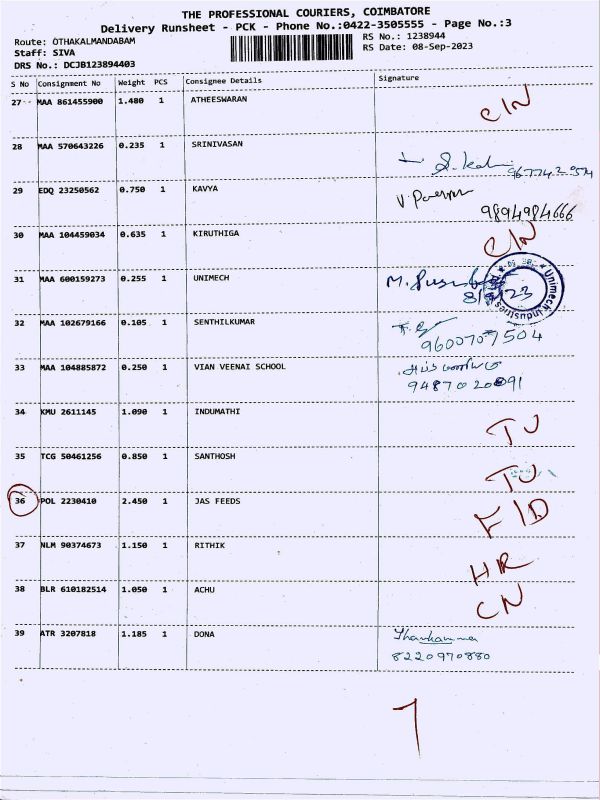 THE PROFESSIONAL COURIERS, COIMBATORE
Delivery Runsheet - PCK - Phone No.:0422-3505555 - Page No.:3
Route: OTHAKALMANDABAM
Staff: SIVA
DRS No.: DCJB123894403
RS No.: 1238944
RS Date: 08-Sep-2023
S No Consignment No Weight PCS Consignee Details Signature
27 MAA 861455900 1.480 1 ATHEESWARAN C/N
28 MAA 570643226 0.235 1 SRINIVASAN
29 EDQ 23250562 0.750 1 KAVYA V.
9894984666
30 MAA 104459034 0.635 1 KIRUTHIGA C/N
31 MAA 600159273 0.255 1 UNIMECH M.
Unimech Industries
32 MAA 102679166 0.105 1 SENTHILKUMAR
9600707504
33 MAA 104885872 0.250 1 VIAN VEENAI SCHOOL
34 KMU 2611145 1.090 1 INDUMATHI TU
35 TCG 50461256 0.850 1 SANTHOSH TU
36 POL 2230410 2.450 1 JAS FEEDS F/D
37 NLM 90374673 1.150 1 RITHIK HR
38 BLR 610182514 1.050 1 ACHU CN
39 ATR 3207818 1.185 1 DONA Thankamma
8220970880
7